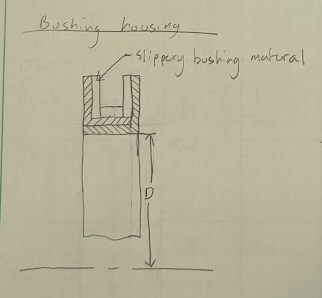 Bushing housing
slippery bushing material
D